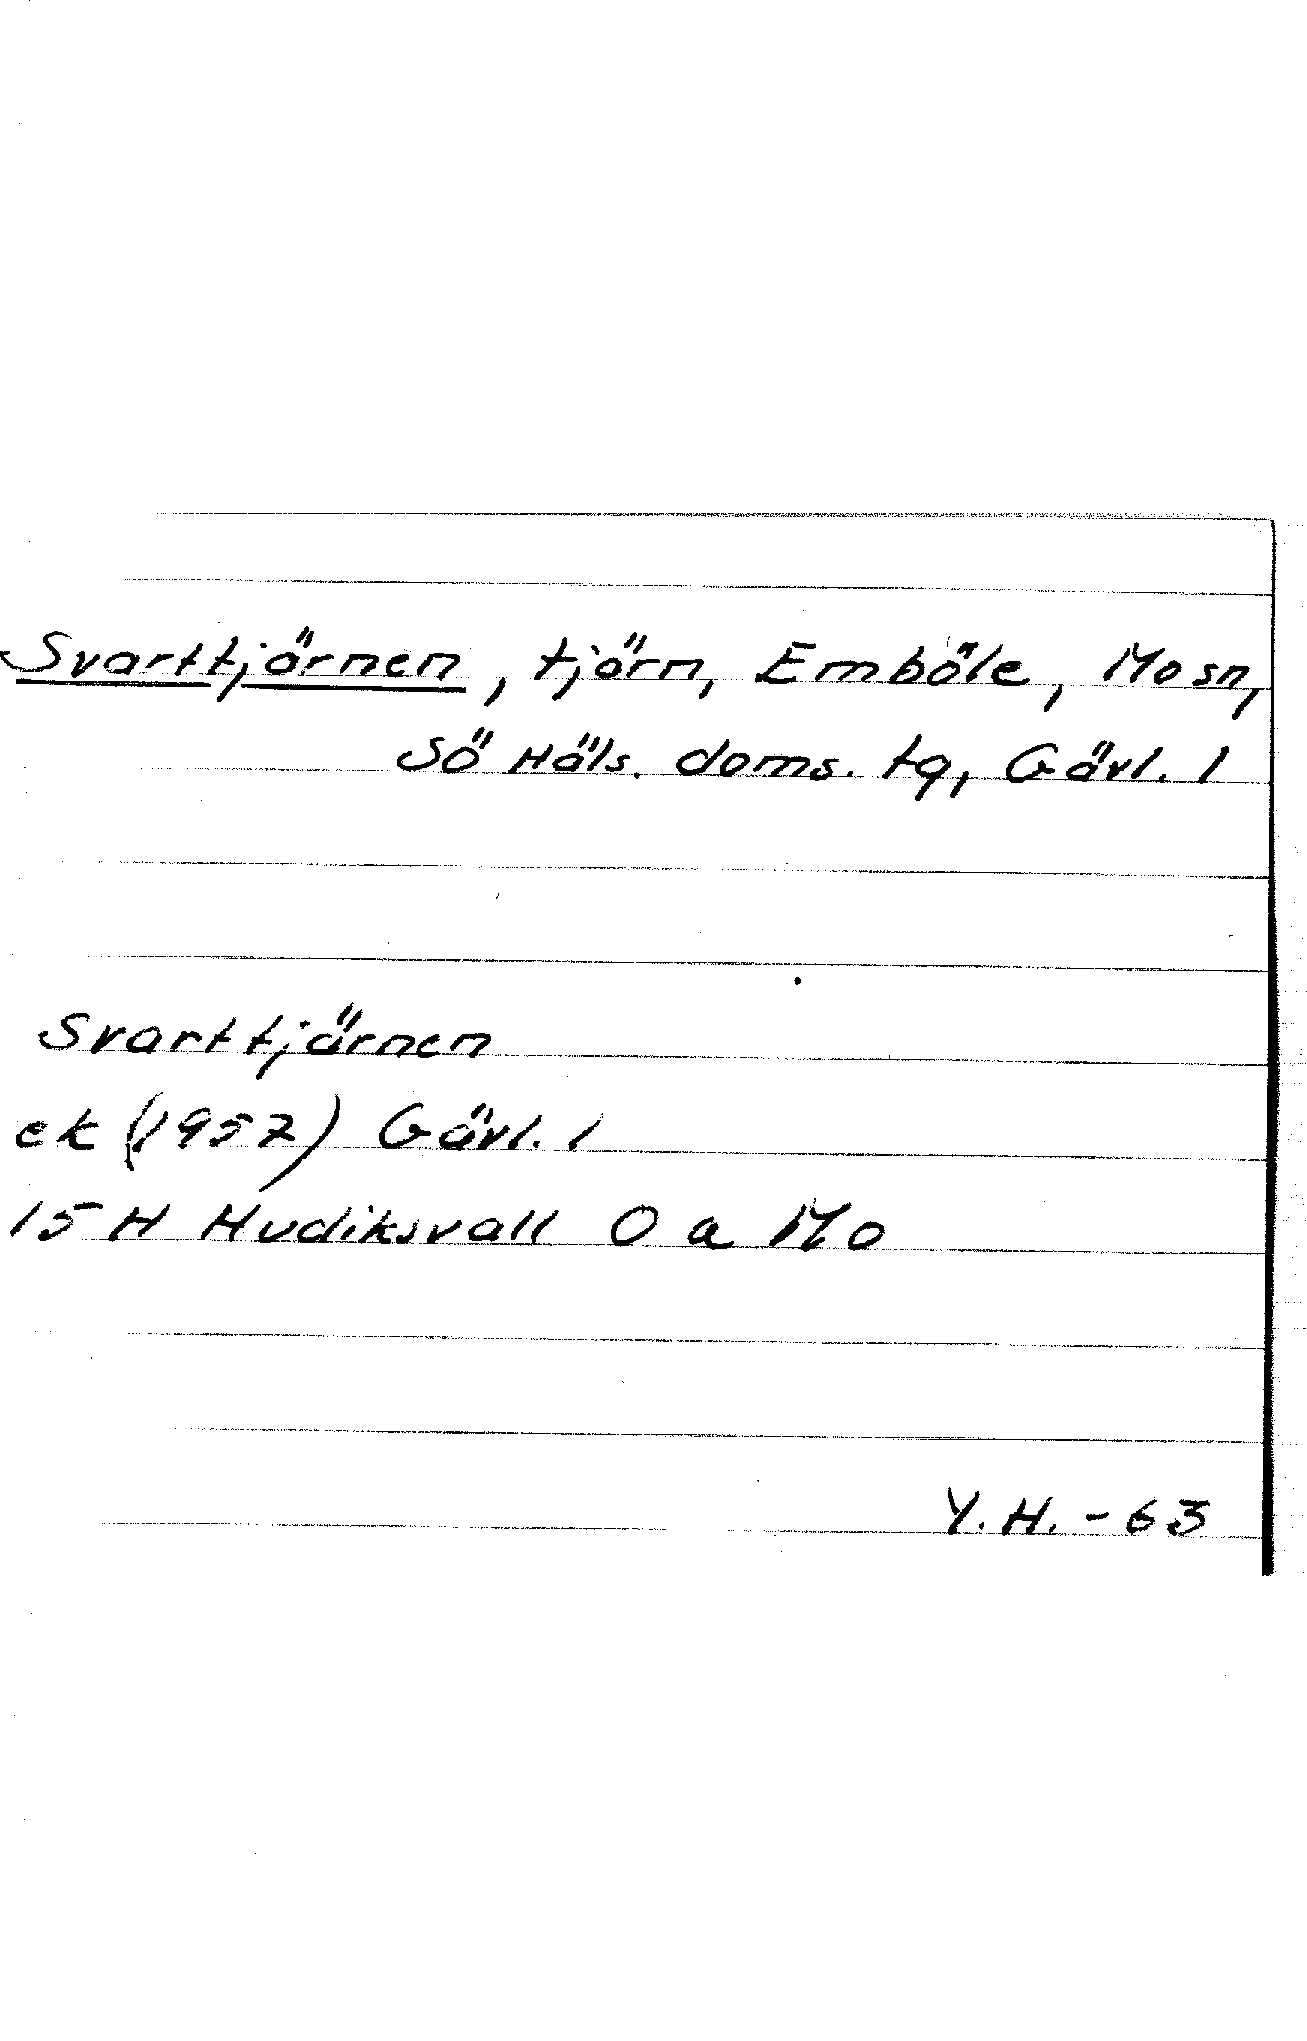 Svarttjärnen, tjärn, Emböle, Mo sn,
Sö Häls. doms. tg, Gävl. l
Svarttjärnen
ek (1957) Gävl. l
15 H Hudiksvall O a Mo
Y.H. - 63